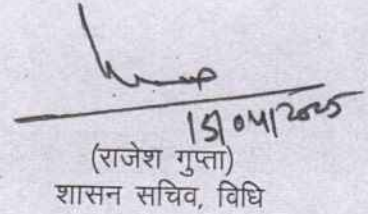 15/04/2025
(राजेश गुप्ता)
शासन सचिव, विधि